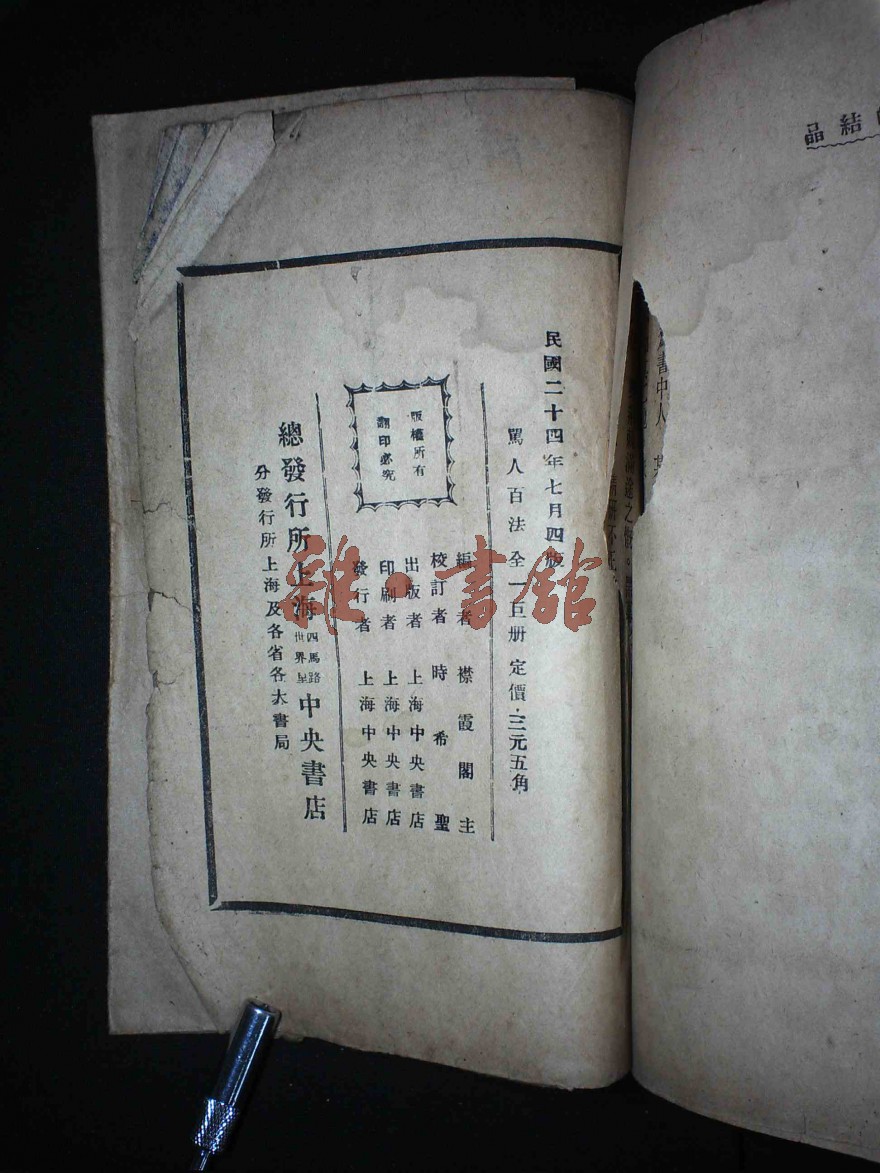 民國二十四年七月四版
罵人百法 全一巨册 定價·三元五角
編者 襟霞閣主
校訂者 時希聖
出版者 上海中央書店
印刷者 上海中央書店
發行者 上海中央書店
版權所有
翻印必究
總發行所上海 四馬路 世界里 中央書店
分發行所上海及各省各大書局
雜·書館
結品
書中人